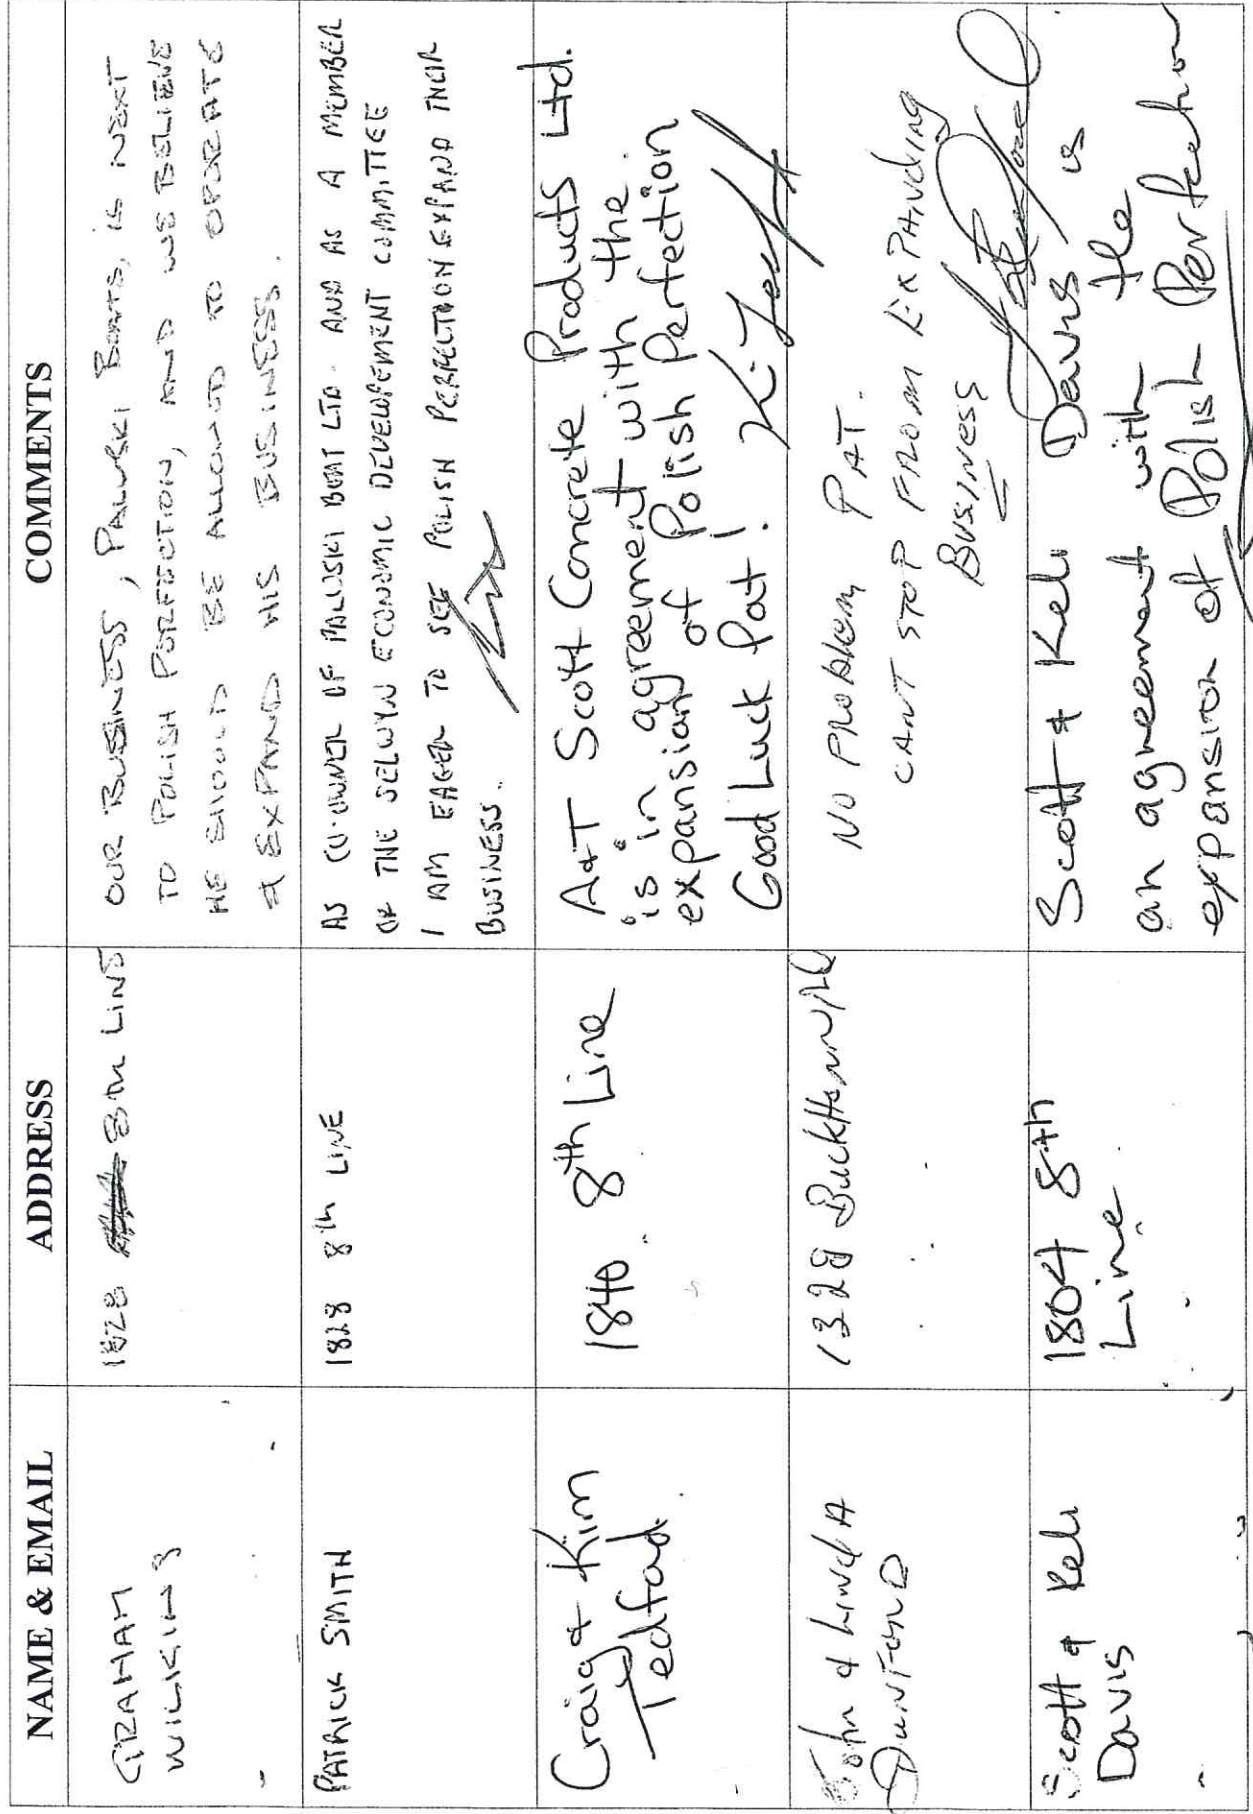 NAME & EMAIL
ADDRESS
COMMENTS
GRAHAM
WILKINS
1828 8th LINE
OUR BUSINESS, PALUSKI BOATS, IS NEXT
TO POLISH PERFECTION, AND WE BELIEVE
HE SHOULD BE ALLOWED TO OPERATE
& EXPAND HIS BUSINESS.
PATRICK SMITH
1828 8th LINE
AS CO-OWNER OF PALUSKI BOAT LTD. AND AS A MEMBER
OF THE SELWYN ECONOMIC DEVELOPEMENT COMMITTEE
I AM EAGER TO SEE POLISH PERFECTION EXPAND THEIR
BUSINESS.
Craig & Kim
Tedford
1840 8th Line
A&T Scott Concrete Products Ltd.
is in agreement with the
expansion of Polish Perfection
Good Luck Pat!
John & LindA
DunFORD
1328
NO PROBlem PAT.
CANT STOP FROM EXPANding
BUSINESS
Scott & Keli
Davis
1804 8th
Line
Scott & Keli Davis is
an agreement with the
expansion of Polish Perfection